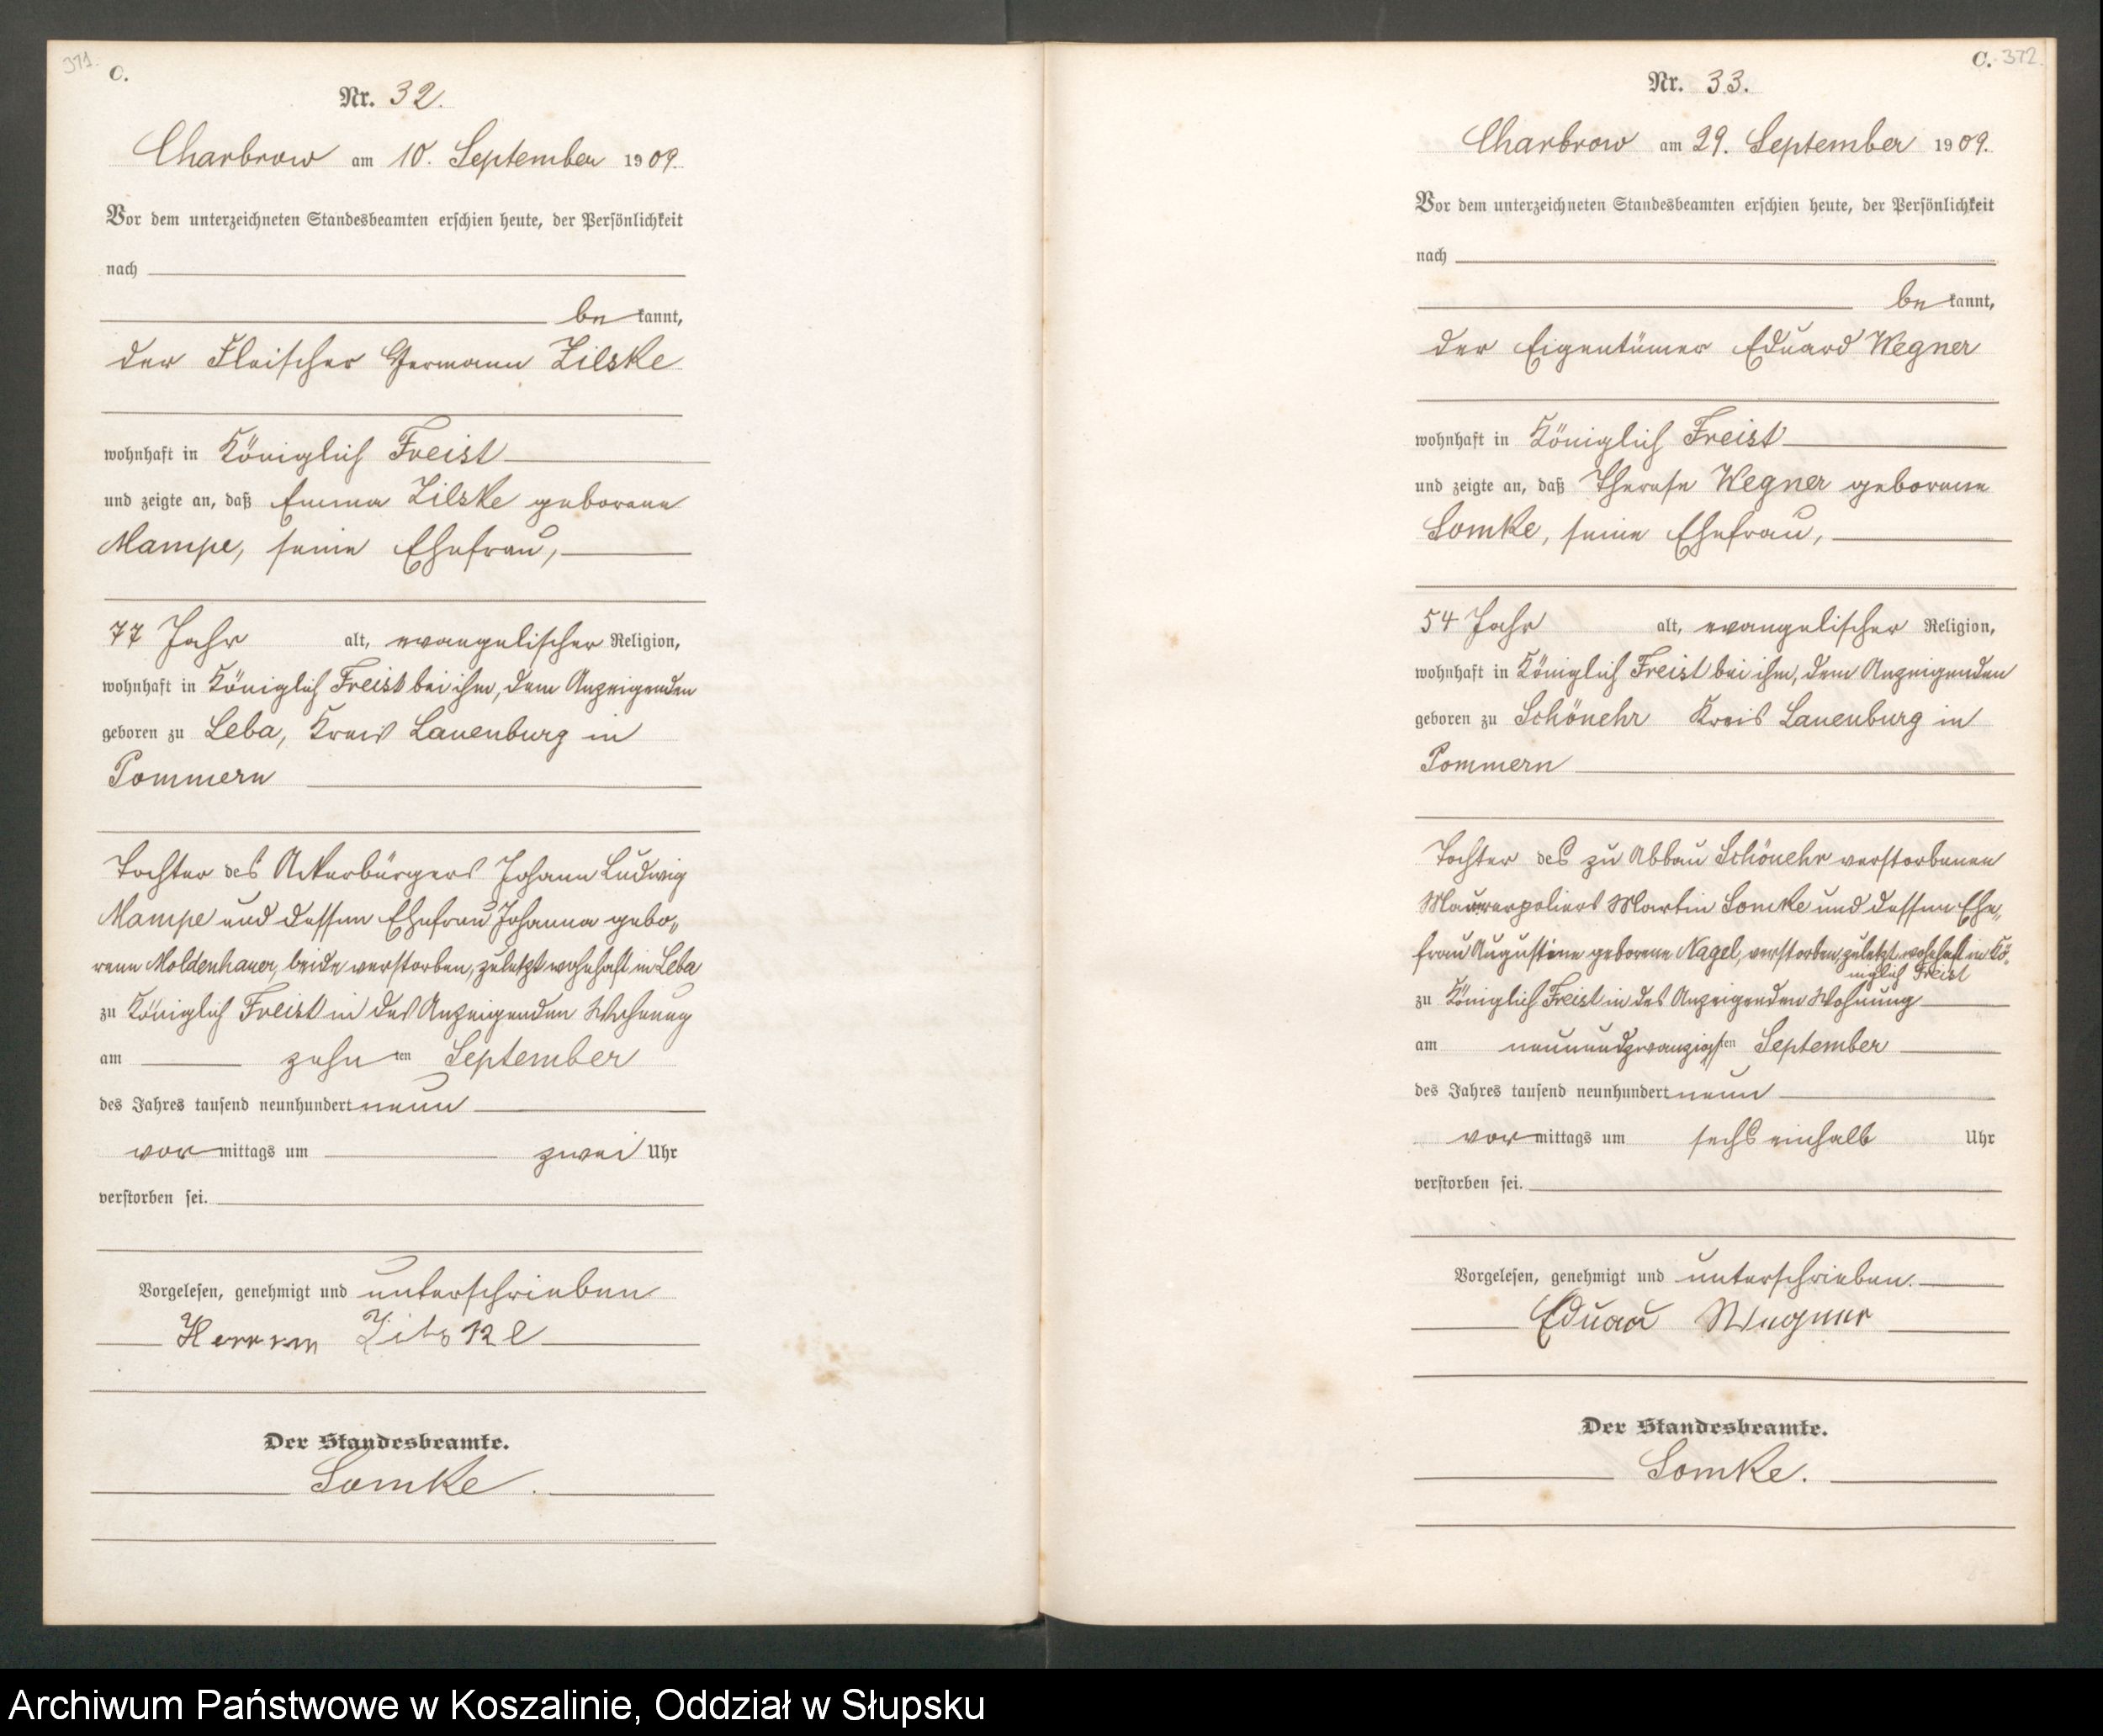 371.
C.
Nr. 32.
Charbrow am 10. September 1909.
Vor dem unterzeichneten Standesbeamten erschien heute, der Persönlichkeit
nach
bekannt,
der Fleischer Hermann Zilske
wohnhaft in Königlich Freist
und zeigte an, daß Emma Zilske geborene
Mampe, seine Ehefrau,
77 Jahr alt, evangelischer Religion,
wohnhaft in Königlich Freist bei ihm, dem Anzeigenden
geboren zu Leba, Kreis Lauenburg in
Pommern
Tochter des Ackerbürgers Johann Ludwig
Mampe und dessen Ehefrau Johanna gebo„
rene Moldenhauer, beide verstorben, zuletzt wohnhaft in Leba
zu Königlich Freist in des Anzeigenden Wohnung
am zehnten September
des Jahres tausend neunhundert neun
vormittags um zwei Uhr
verstorben sei.
Vorgelesen, genehmigt und unterschrieben
Zilske
Der Standesbeamte.
Lomke.
C. 372.
Nr. 33.
Charbrow am 29. September 1909.
Vor dem unterzeichneten Standesbeamten erschien heute, der Persönlichkeit
nach
bekannt,
der Eigentümer Eduard Wegner
wohnhaft in Königlich Freist
und zeigte an, daß Therese Wegner geborene
Lomke, seine Ehefrau,
54 Jahr alt, evangelischer Religion,
wohnhaft in Königlich Freist bei ihm, dem Anzeigenden
geboren zu Schönehr Kreis Lauenburg in
Pommern
Tochter des zu Abbau Schönehr verstorbenen
Maurerpoliers Martin Lomke und dessen Ehe„
frau Augustine geborene Nagel, verstorben, zuletzt wohnhaft in Kö„
niglich Freist
zu Königlich Freist in des Anzeigenden Wohnung
am neunundzwanzigsten September
des Jahres tausend neunhundert neun
vormittags um sechseinhalb Uhr
verstorben sei.
Vorgelesen, genehmigt und unterschrieben.
Eduard Wegner
Der Standesbeamte.
Lomke.
Archiwum Państwowe w Koszalinie, Oddział w Słupsku